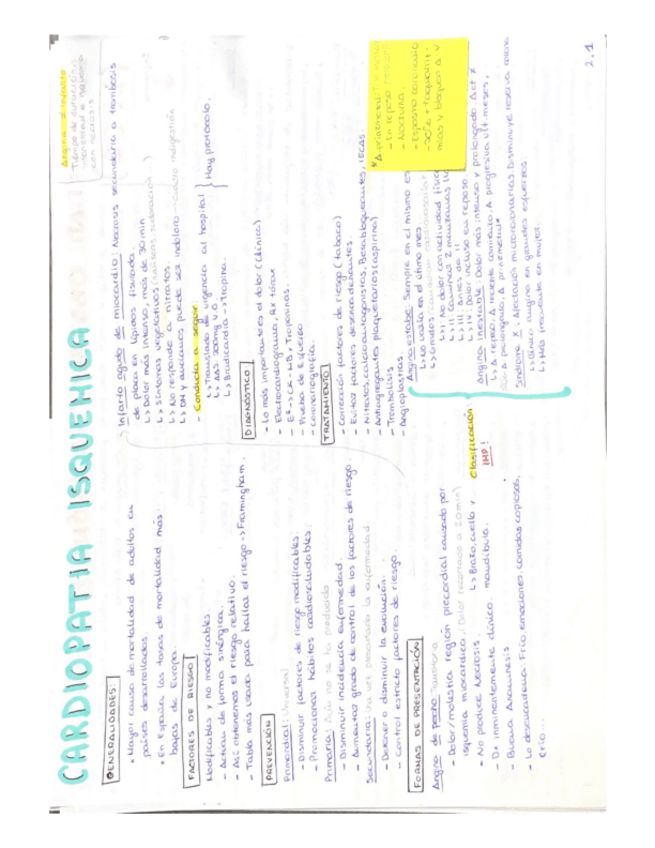 CARDIOPATIA ISQUEMICA
GENERALIDADES:
• Mayor causa de mortalidad de adultos en
países desarrollados
• En España las tasas de mortalidad más
bajas de Europa
FACTORES DE RIESGO
Modificables y no modificables
- Actúan de forma sinérgica.
- Así obtenemos el riesgo relativo.
- Tabla más usada para hallar el riesgo -> Framingham.
PREVENCIÓN
Primordial: Universal
- Disminuir factores de riesgo modificables.
- Promocionar hábitos cardiosaludables.
Primaria: Aún no se ha producido
- Disminuir incidencia enfermedad.
- Aumentar grado de control de los factores de riesgo.
Secundaria: Una vez presentada la enfermedad
- Detener o disminuir la evolución.
- Control estricto factores de riesgo.
FORMAS DE PRESENTACIÓN
Angina de pecho: Transitoria
- Dolor/molestia región precordial causado por
isquemia miocardica. (Dolor recortado a 20min)
- No produce necrosis ↳ Brazo, cuello y
- Dx inminentemente clínico. mandíbula.
- Buena Anamnesis
- Lo desencadena: Frío, emociones, comidas copiosas,
Infarto agudo de miocardio: Necrosis secundaria a trombosis
de placa en lípidos fisurada.
↳ Dolor más intenso, más de 30min
↳ Síntomas vegetativos
↳ No responde a nitratos.
↳ DM y ancianos puede ser indoloro - indigestión
- Conducta a seguir:
↳ Translado de urgencia al hospital } Hay protocolo.
↳ AAS 300mg v.o.
↳ Bradicardia -> Atropina.
DIAGNÓSTICO
- Lo más importante es el dolor (clínica)
- Electrocardiograma, Rx tórax
- Eº -> CK-MB, Troponinas.
- Prueba de Esfuerzo
- Coronariografía.
TRATAMIENTO
- Corrección factores de riesgo (tabaco)
- Evitar factores desencadenantes.
- Nitratos, calcioantagonistas, Betabloqueantes, IECAS
- Antiagregantes plaquetarios (aspirina)
- Trombolisis
- Angioplastias.
Clasificación
IMP!
Angina estable: Siempre en el mismo es
↳ No varía en el último mes
↳ I: No dolor con actividad física
↳ II: Caminar 2 manzanas
↳ III: Antes de II
↳ IV: Dolor incluso en reposo.
Angina Inestable: Dolor más intenso y prolongado. Act ≠
↳ A reposo, A reciente comienzo, A progresiva ult. meses,
A prolongada, A prinzmetal*
Síndrome X: Afectación microcoronarias. Disminuye reserva corona
↳ Clínica: Angina en grandes esfuerzos
↳ Más frecuente en mujer.
Angina ≠ infarto
Tiempo de duración
con necrosis
*A. prinzmetal
- En reposo
- Nocturna.
- Espasmo coronario
- 50% + Taquiarrit-
mias y bloqueo A-V
2.1